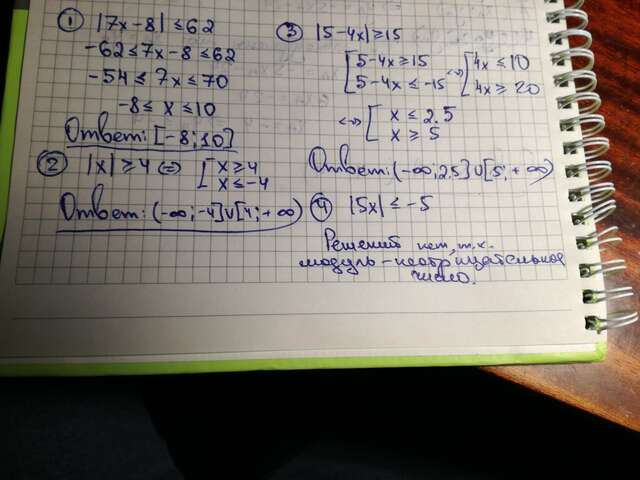 ① |7x-8| ≤ 62
-62 ≤ 7x-8 ≤ 62
-54 ≤ 7x ≤ 70
-8 ≤ x ≤ 10
Ответ: [-8; 10]
② |x| ≥ 4 ⇔ [ x ≥ 4
x ≤ -4
Ответ: (-∞; -4]∪[4; +∞)
③ |5-4x| ≥ 15
[ 5-4x ≥ 15 ⇔ [ 4x ≤ 10
5-4x ≤ -15 4x ≥ 20
⇔ [ x ≤ 2,5
x ≥ 5
Ответ: (-∞; 2,5]∪[5; +∞)
④ |5x| ≤ -5
Решений нет, т.к.
модуль - неотрицательное
число.